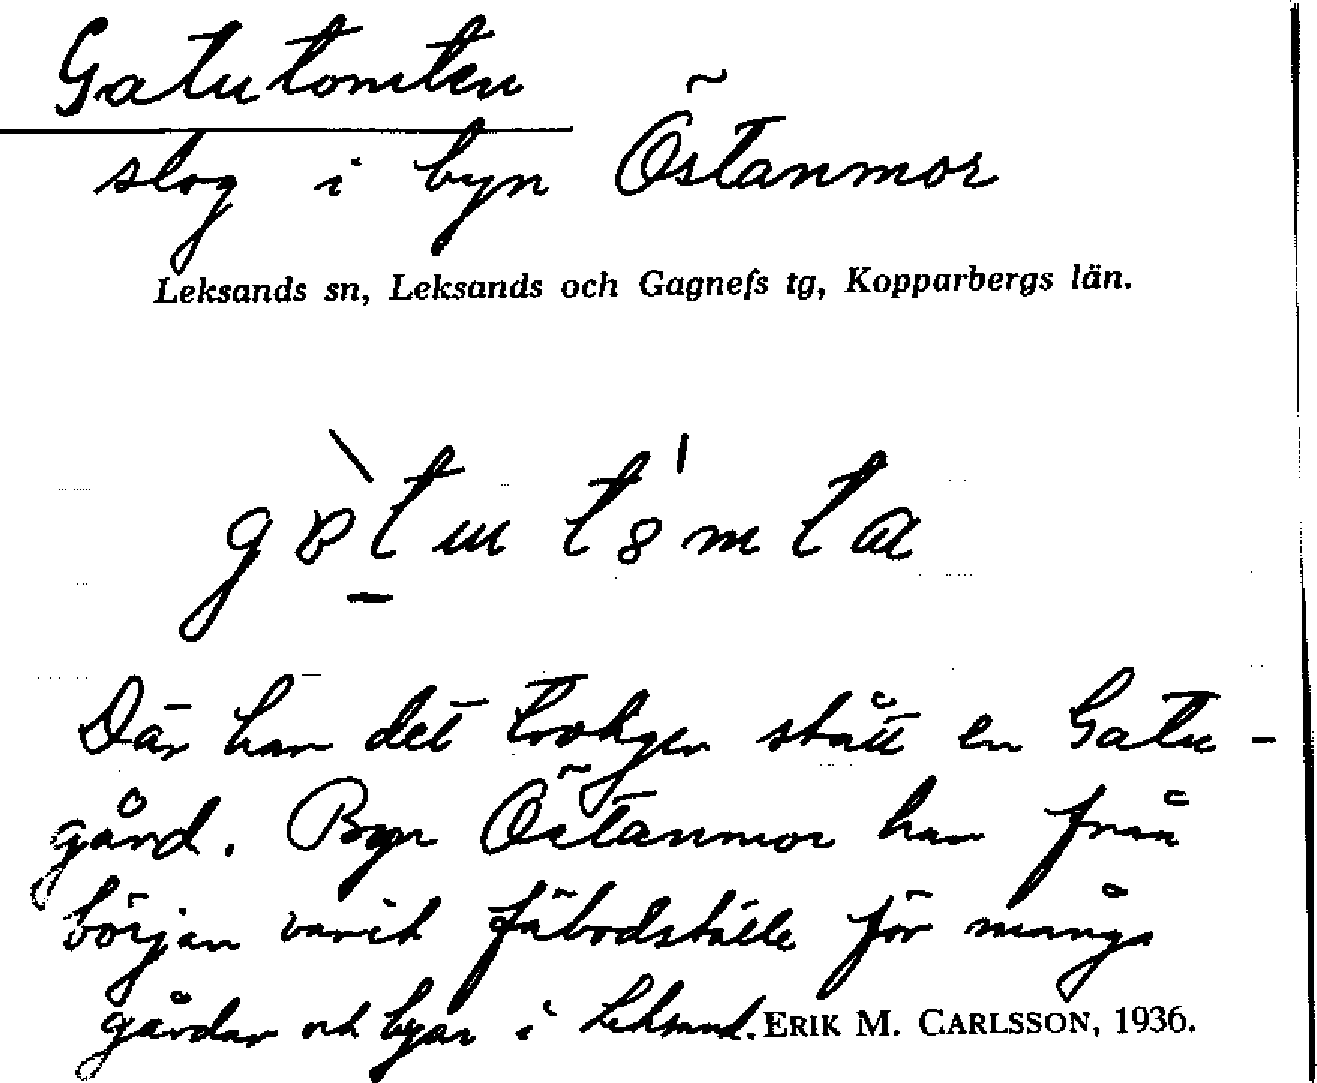 Gatutomten
slog i byn Östanmor
Leksands sn, Leksands och Gagnefs tg, Kopparbergs län.
Där har det troligen stått en Gatu-
gård. Byn Östanmor har från
början varit fäbodställe för många
gårdar och byar i Leksand. ERIK M. CARLSSON, 1936.